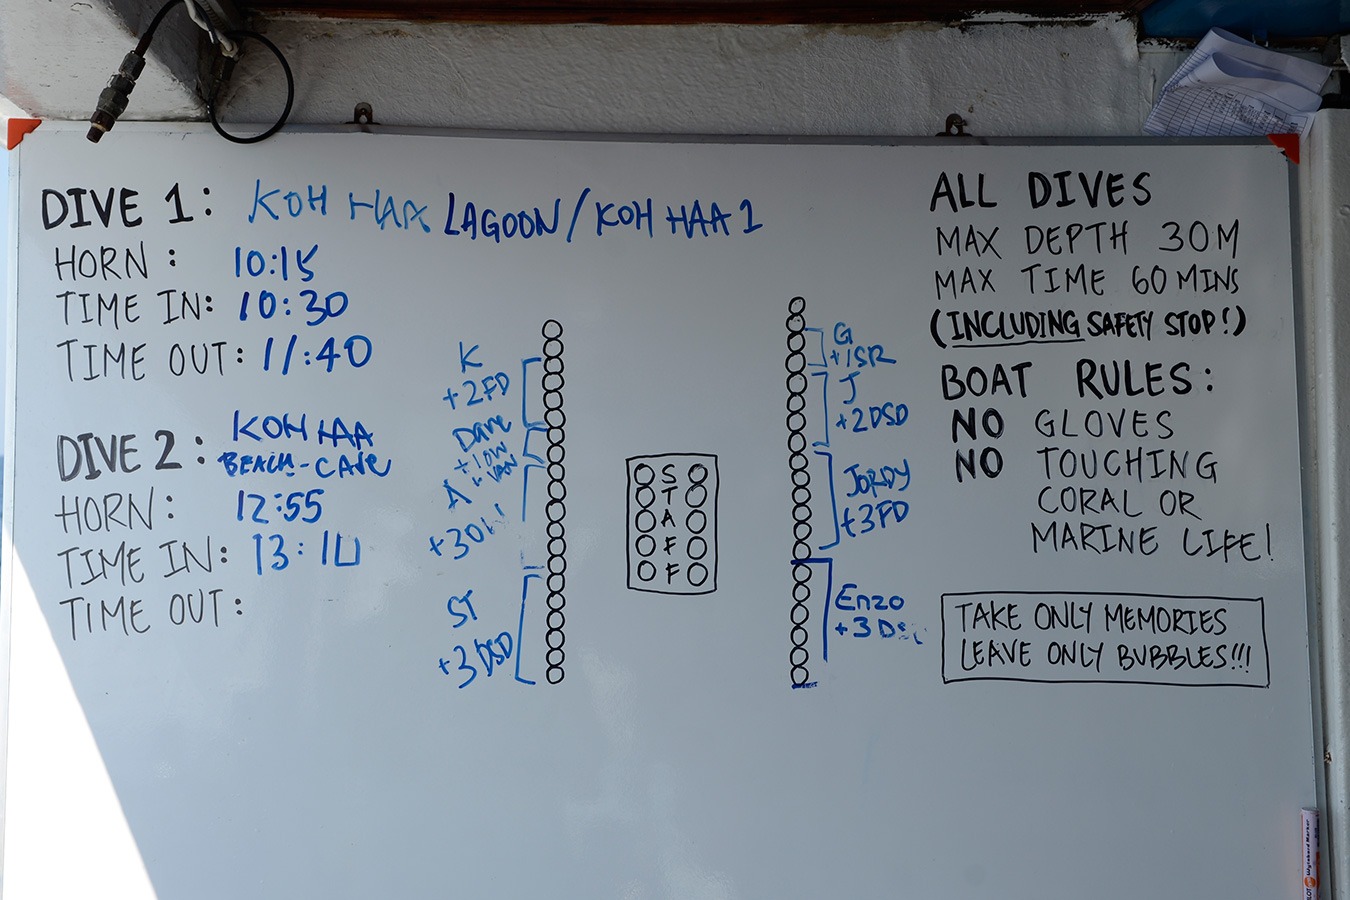 DIVE 1: KOH HAA LAGOON/KOH HAA 1
HORN: 10:15
TIME IN: 10:30
TIME OUT: 11:40
DIVE 2: KOH HAA
BEACH-CAVE
HORN: 12:55
TIME IN: 13:10
TIME OUT:
K
+2FD
Dave
+1OW
A
+3OW
ST
+3DSD
STAFF
G
+1SR
J
+2DSD
JORDY
+3FD
Enzo
ALL DIVES
MAX DEPTH 30M
MAX TIME 60 MINS
(INCLUDING SAFETY STOP!)
BOAT RULES:
NO GLOVES
NO TOUCHING
CORAL OR
MARINE LIFE!
TAKE ONLY MEMORIES
LEAVE ONLY BUBBLES!!!
Wyteboard Marker